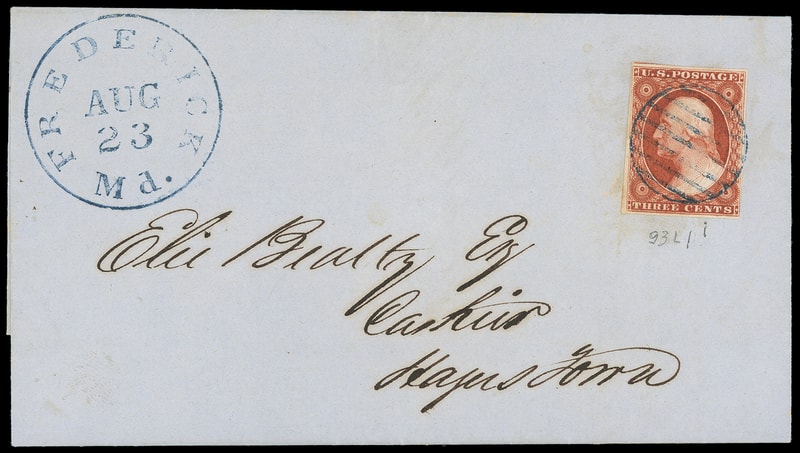 FREDERICK
AUG
23
Md.
U.S. POSTAGE
THREE CENTS
93L1 i
Elie Bealty Esq
Cashier
Hagerstown